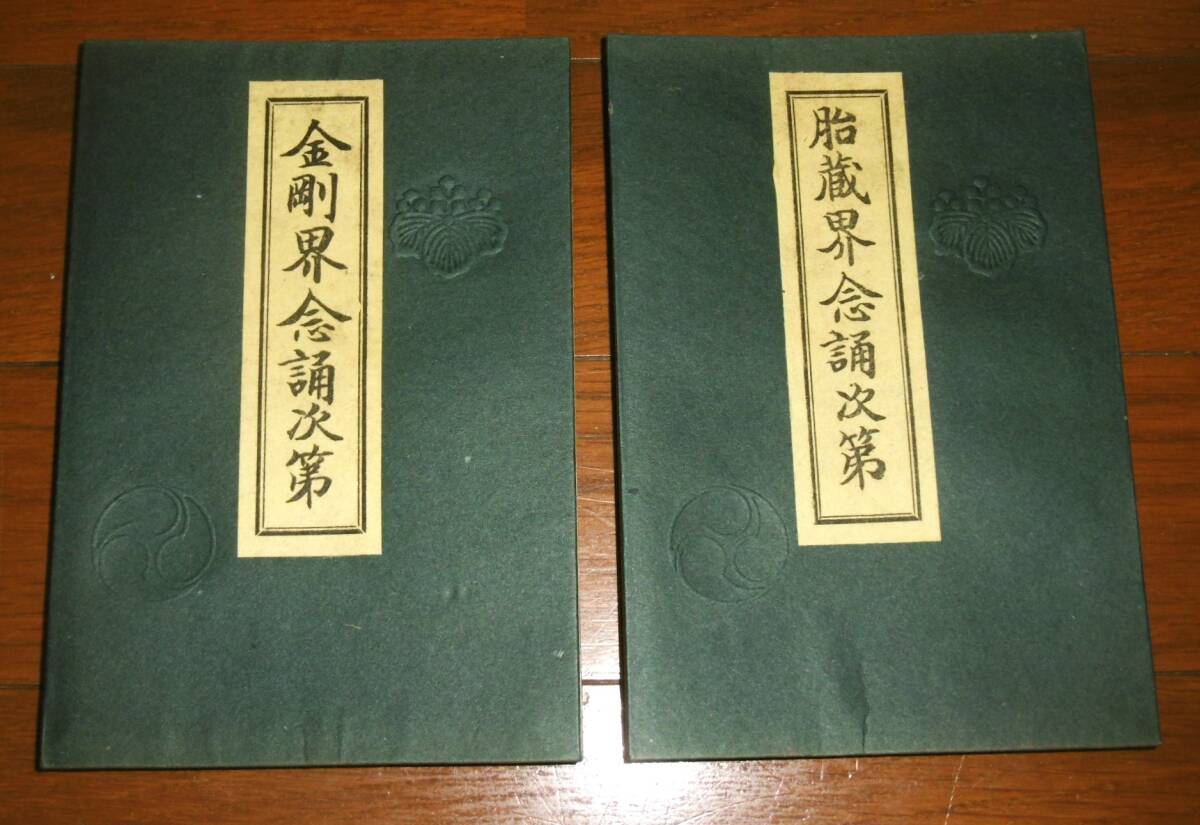 金剛界念誦次第
胎蔵界念誦次第